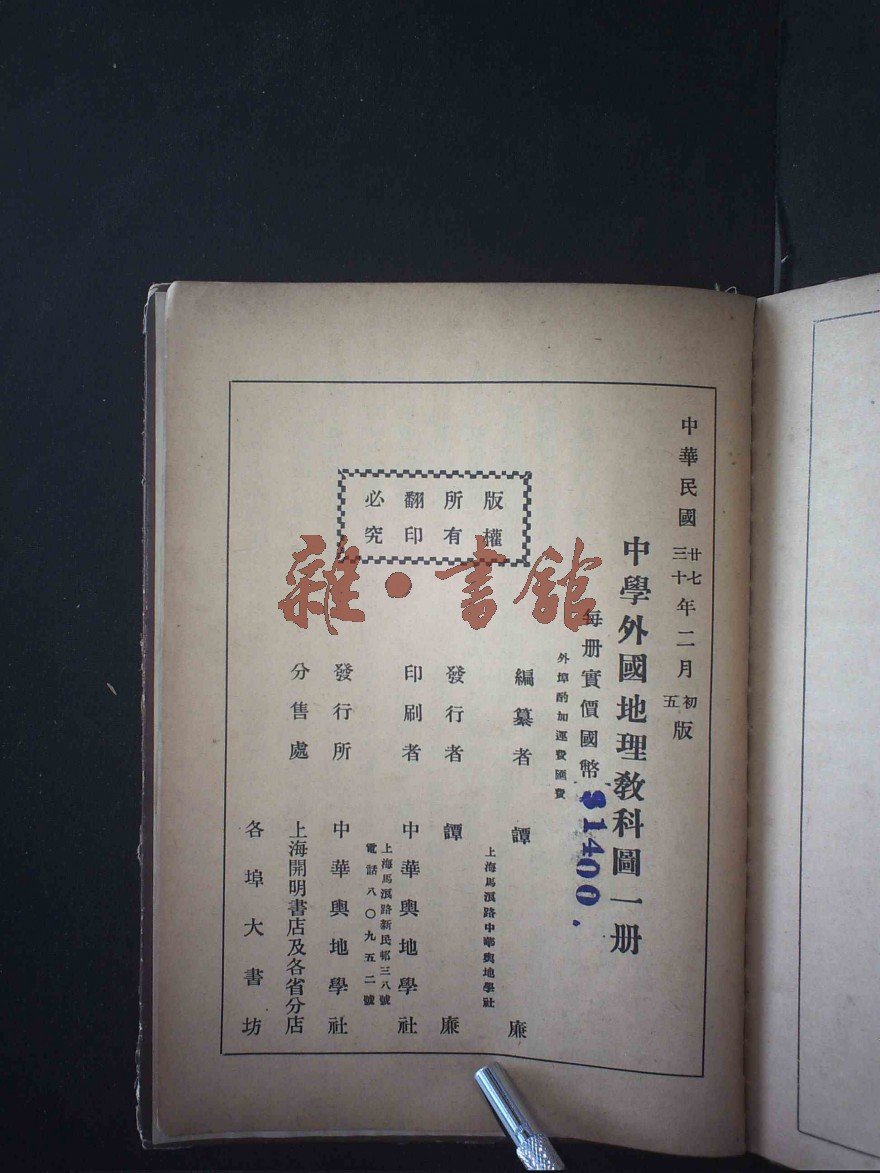 中華民國廿七年二月初版
三十五
中學外國地理教科圖一册
每册實價國幣$1400.
外埠酌加運費匯費
編纂者 譚廉
上海馬滇路中華輿地學社
發行者 譚廉
印刷者 中華輿地學社
上海馬滇路新民邨三八號
電話八〇九五二號
發行所 中華輿地學社
分售處 上海開明書店及各省分店
各埠大書坊
版權
所有
翻印
必究
雜·書館